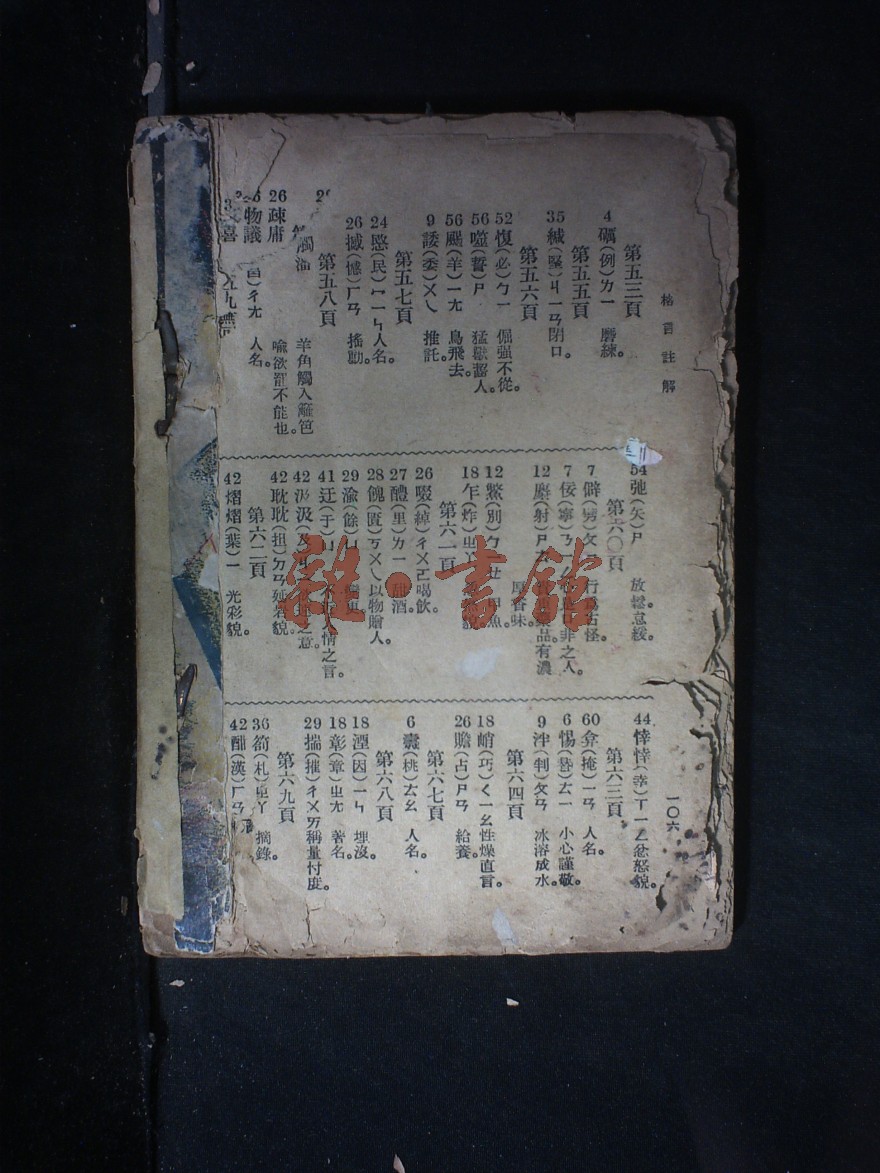 格言註解
一〇六
第五三頁
4 礪(例)ㄌㄧ 磨練。
第五五頁
35 緘(堅)ㄐㄧㄢ閉口。
第五六頁
52 愎(必)ㄅㄧ 倔強不從。
56 噬(誓)ㄕ 猛獸齧人。
56 颺(羊)ㄧㄤ 鳥飛去。
9 諉(委)ㄨㄟ 推託。
第五七頁
24 愍(民)ㄇㄧㄣ人名。
26 撼(憾)ㄏㄢ 搖動。
第五八頁
羊角觸入籬笆
26 疎庸 喻欲罷不能也。
物議
ㄔㄤ 人名。
54 弛(矢)ㄕ 放鬆怠緩。
第六〇頁
7 僻 行爲古怪。
7 佞(寧)ㄋㄧㄥ 非之人。
12 麝(射)ㄕㄜ 品有濃
厚香味。
12 鱉(別)ㄅㄧㄝ 甲魚。
18 乍(炸)ㄓㄚ
第六一頁
26 啜(綽)ㄔㄨㄛ喝飲。
27 醴(里)ㄌㄧ 甜酒。
28 餽(匱)ㄎㄨㄟ以物贈人。
29 渝(餘)ㄩ
41 迂(于)ㄩ 情之言。
42 汲汲 之意。
42 耽耽(担)ㄉㄢ
第六二頁
42 熠熠(葉)ㄧ 光彩貌。
44 悻悻(幸)ㄒㄧㄥ忿怒貌。
第六三頁
60 弇(掩)ㄧㄢ 人名。
6 惕 ㄊㄧ 小心謹敬。
9 泮(判)ㄆㄢ 冰溶成水。
第六四頁
18 峭(巧)ㄑㄧㄠ性燥直言。
26 贍(占)ㄕㄢ 給養。
第六七頁
6 (桃)ㄊㄠ 人名。
第六八頁
18 湮(因)ㄧㄣ 埋沒。
18 彰(章)ㄓㄤ 著名。
29 揣(摧)ㄔㄨㄞ稱量忖度。
第六九頁
36 劄(札)ㄓㄚ 摘錄。
42 酣(漢)ㄏㄢ
雜·書館